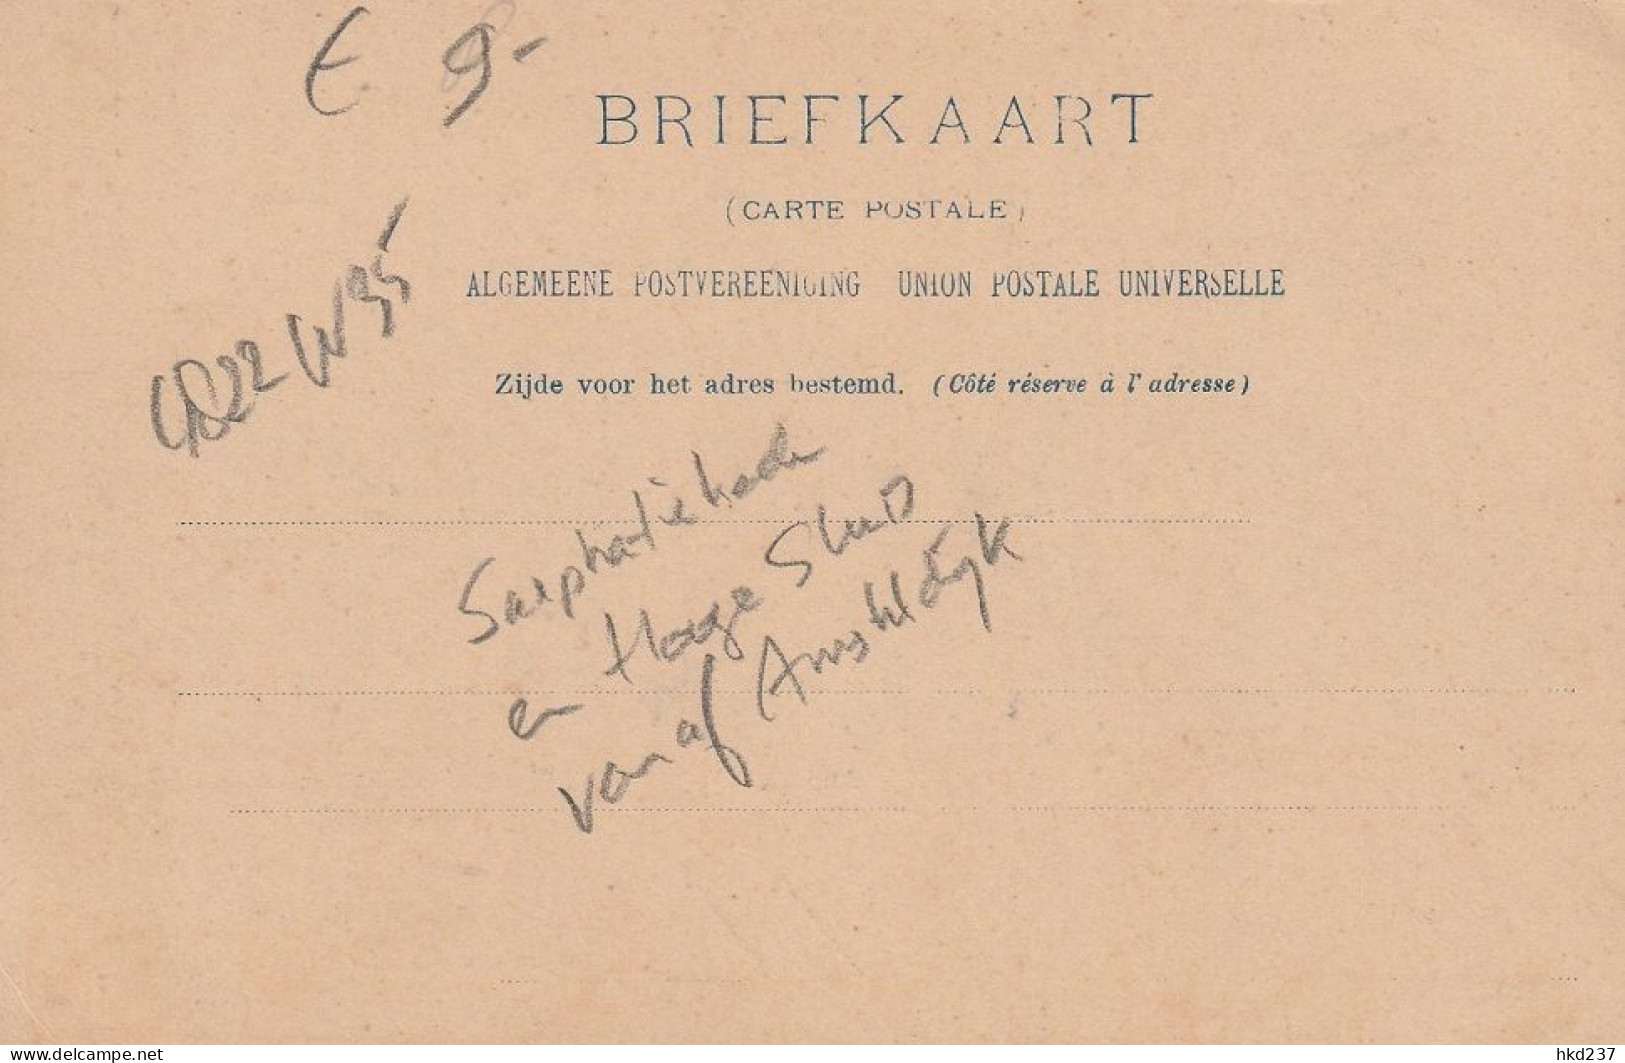 € 9-
BRIEFKAART
(CARTE POSTALE)
ALGEMEENE POSTVEREENIGING UNION POSTALE UNIVERSELLE
Zijde voor het adres bestemd. (Côté réserve à l'adresse)
Sarphatiekade
en Hooge Sluis
vanaf Amsteldijk
www.delcampe.net
hkd237